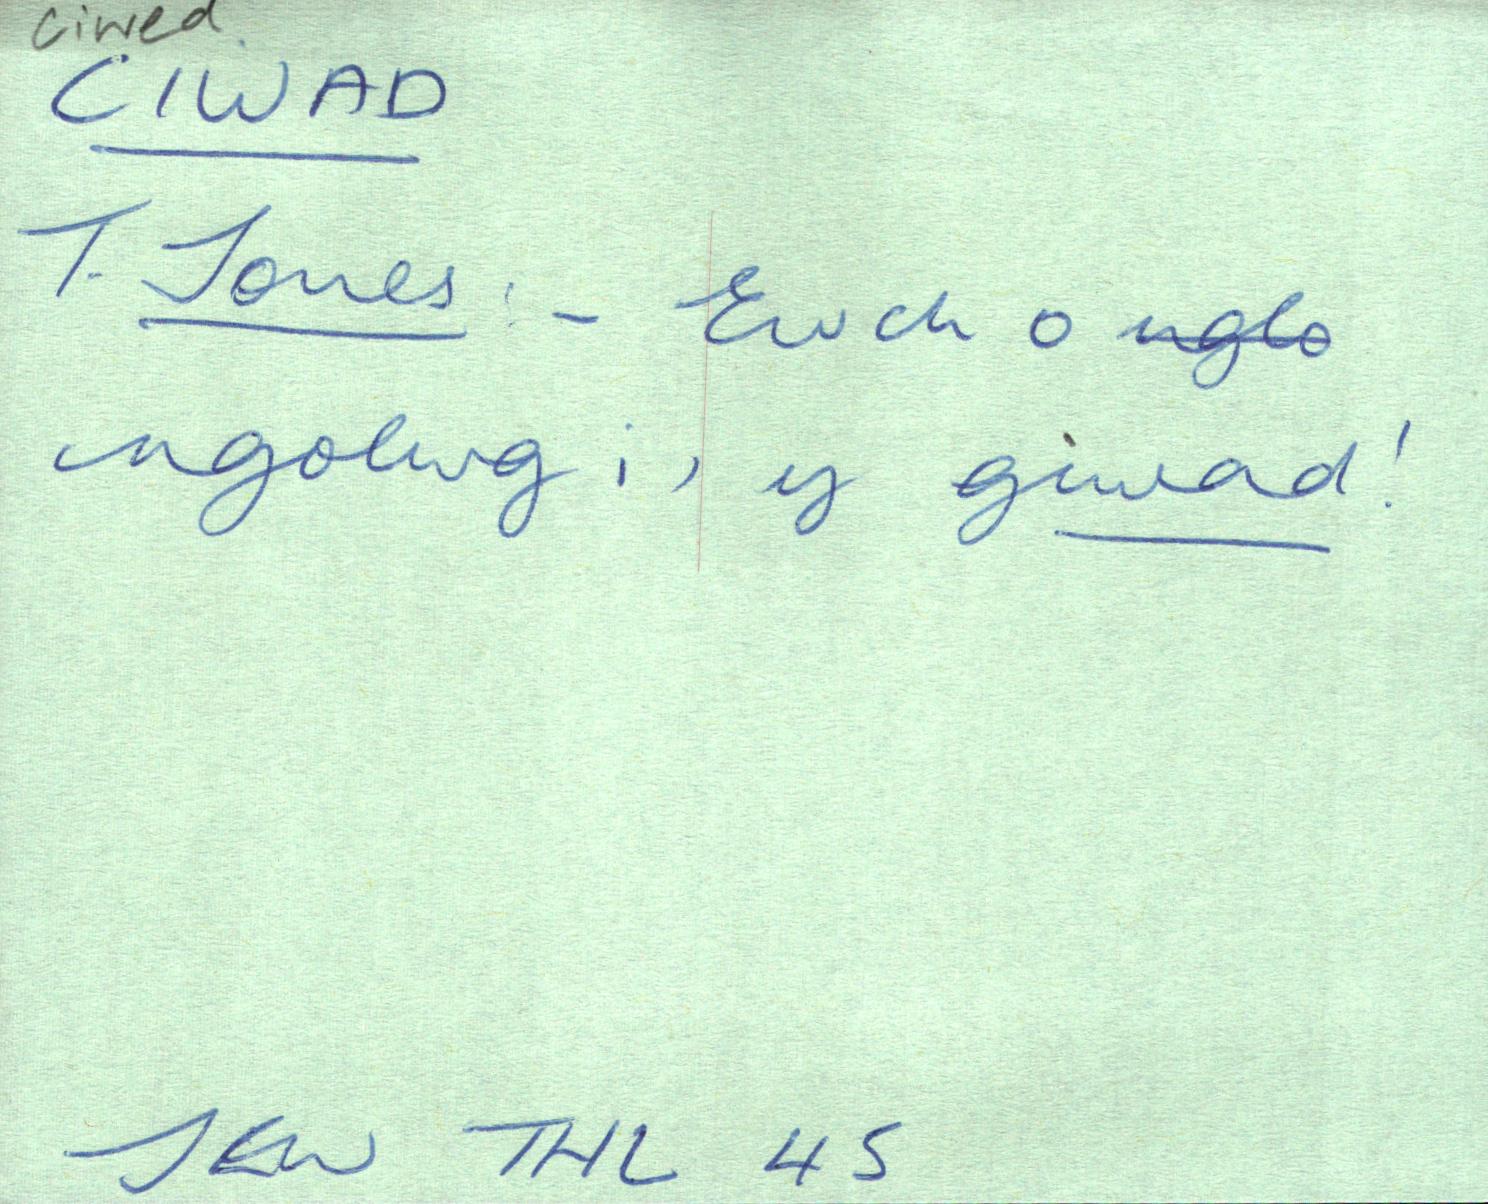 ciwed
CIWAD
T. Jones :- Ewch o nglo
ngolwg i, y giwad!
JEW THL 45